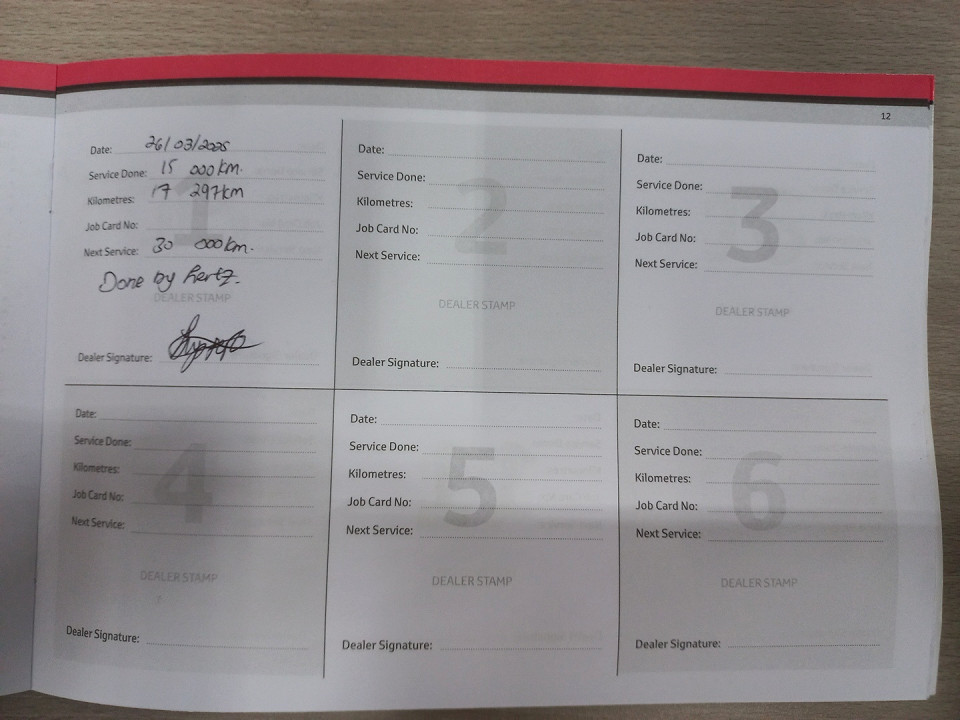 12
Date: 26/03/2025
Service Done: 15 000 km.
Kilometres: 17 297km
Job Card No:
Next Service: 30 000km.
1
Done by hertz.
DEALER STAMP
Dealer Signature:
Date:
Service Done:
Kilometres:
Job Card No:
Next Service:
2
DEALER STAMP
Dealer Signature:
Date:
Service Done:
Kilometres:
Job Card No:
Next Service:
3
DEALER STAMP
Dealer Signature:
Date:
Service Done:
Kilometres:
Job Card No:
Next Service:
4
DEALER STAMP
Dealer Signature:
Date:
Service Done:
Kilometres:
Job Card No:
Next Service:
5
DEALER STAMP
Dealer Signature:
Date:
Service Done:
Kilometres:
Job Card No:
Next Service:
6
DEALER STAMP
Dealer Signature: